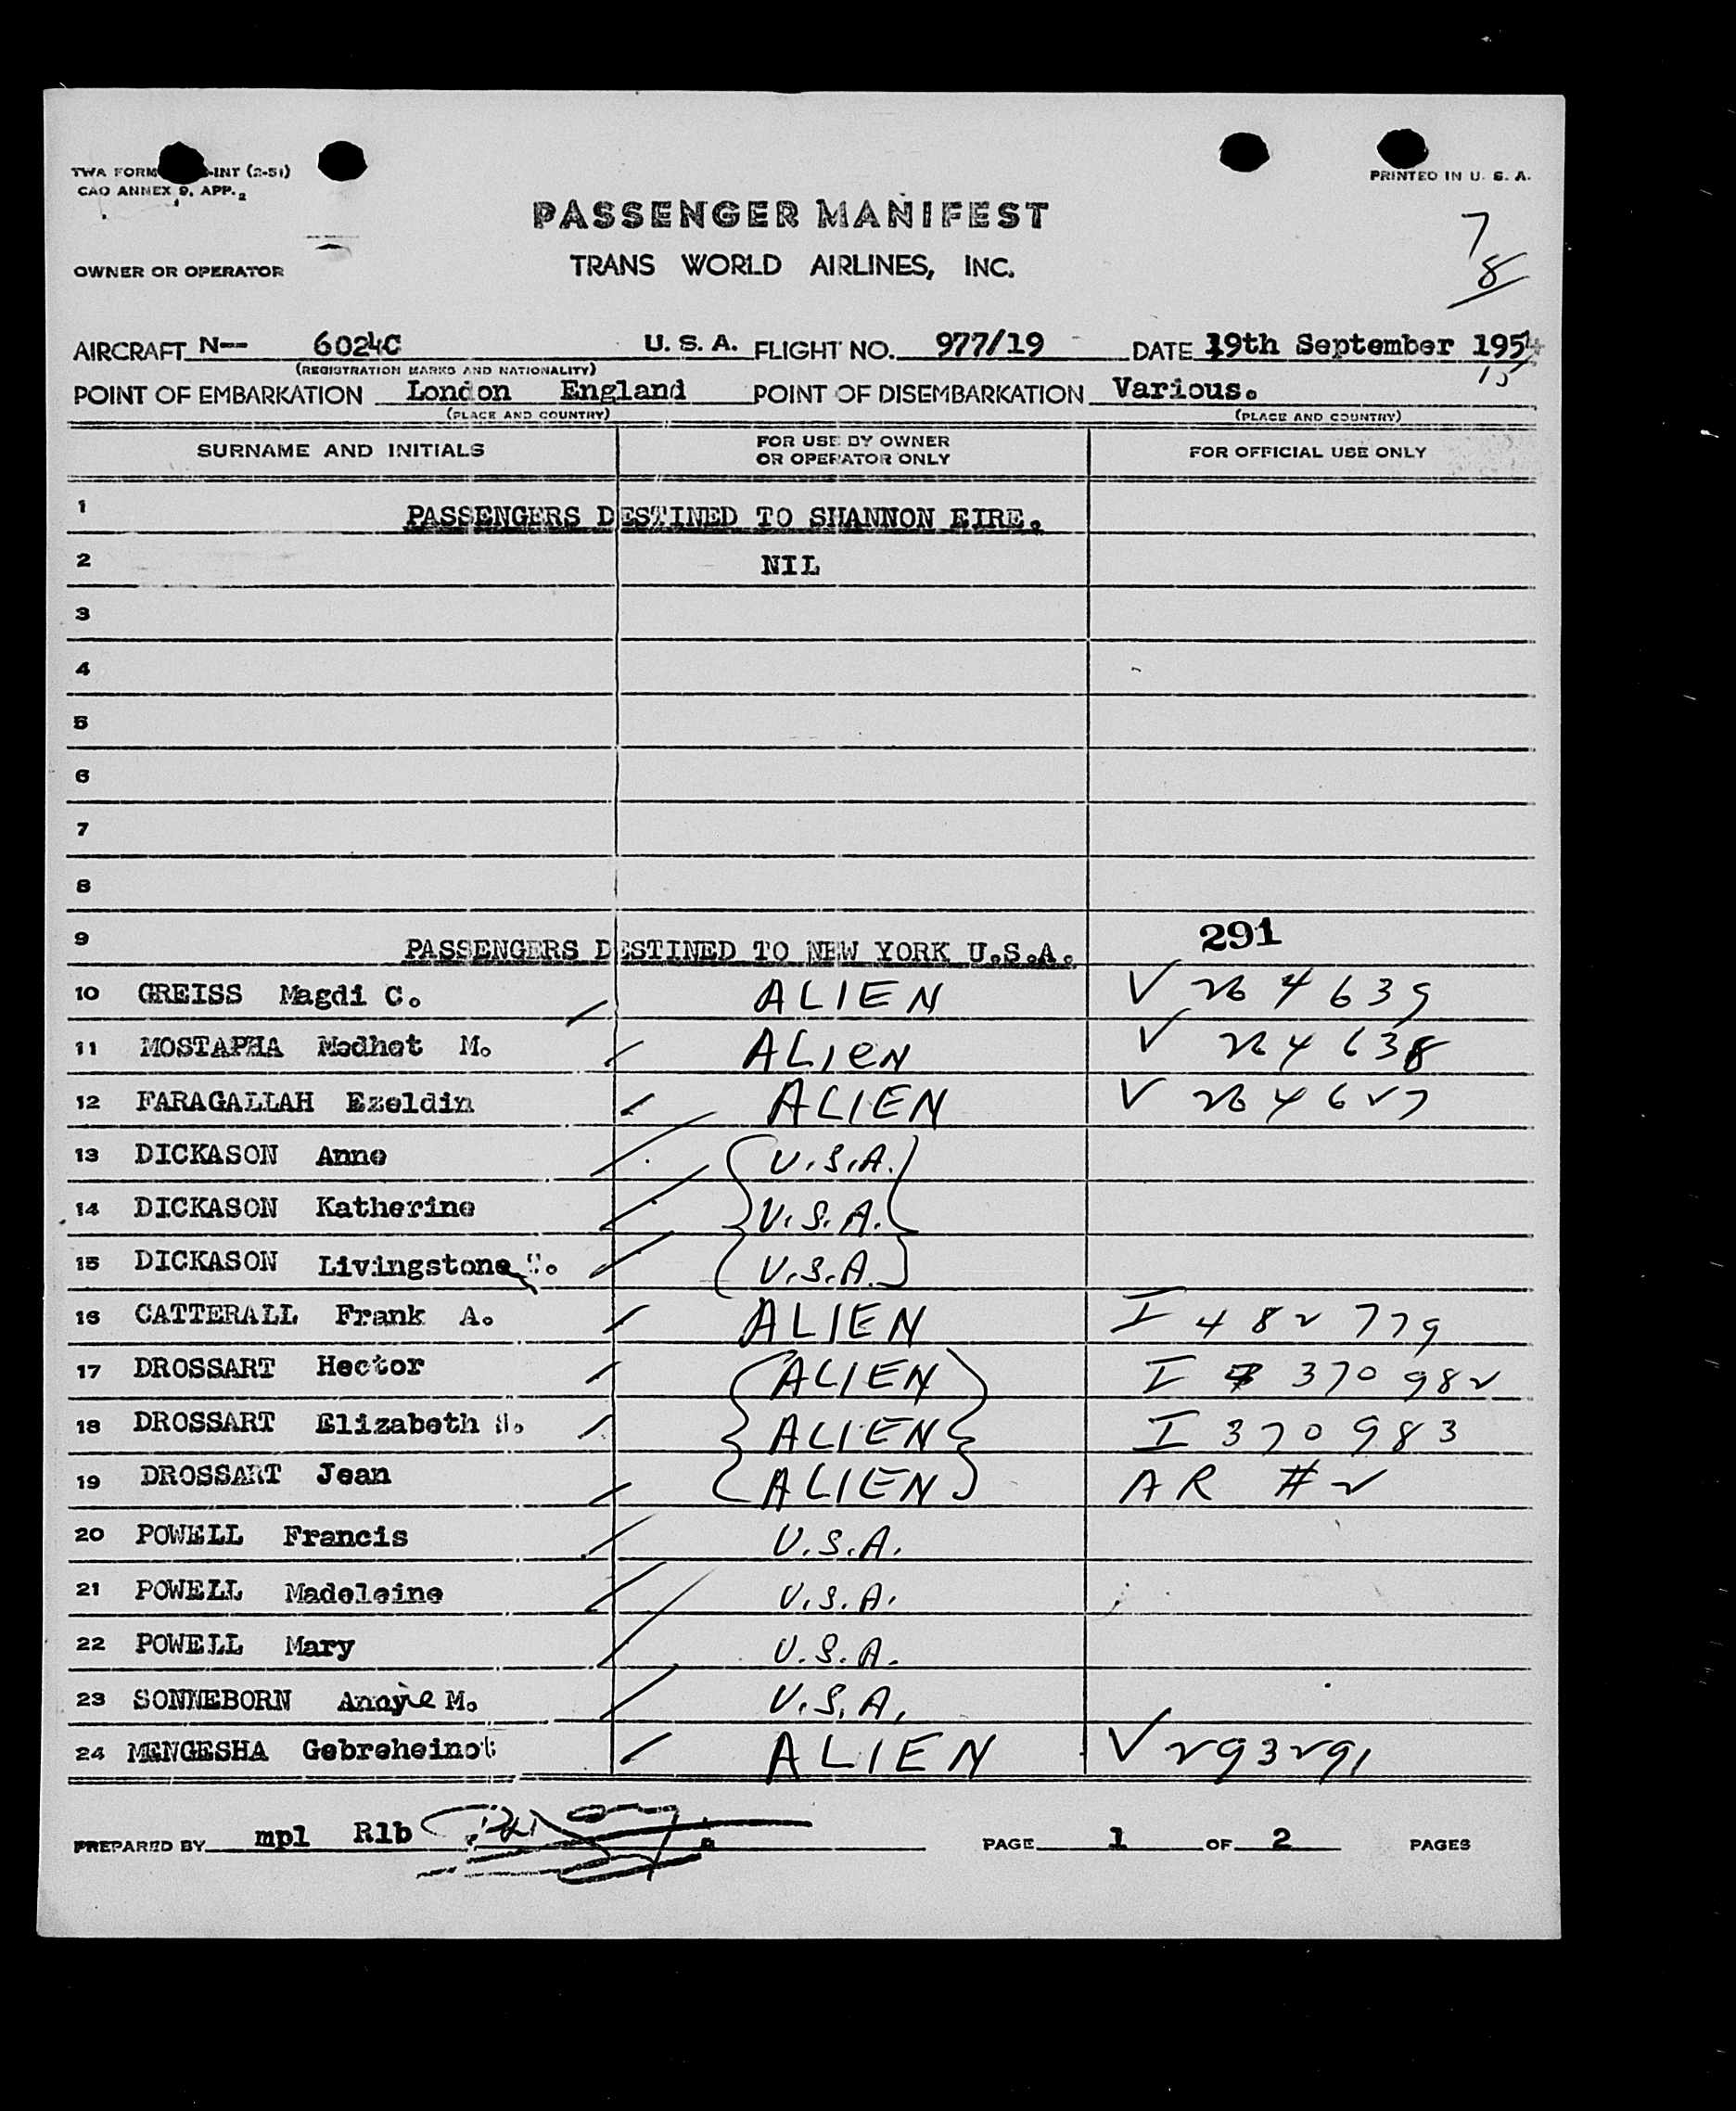 TWA FORM -INT (2-51)
CAO ANNEX 9, APP. 2
PRINTED IN U. S. A.
PASSENGER MANIFEST
7/8
OWNER OR OPERATOR
TRANS WORLD AIRLINES, INC.
AIRCRAFT N-- 6024C U. S. A. FLIGHT NO. 977/19 DATE 19th September 195
(REGISTRATION MARKS AND NATIONALITY)
POINT OF EMBARKATION London England POINT OF DISEMBARKATION Various.
(PLACE AND COUNTRY) (PLACE AND COUNTRY)
SURNAME AND INITIALS FOR USE BY OWNER OR OPERATOR ONLY FOR OFFICIAL USE ONLY
1 PASSENGERS DESTINED TO SHANNON EIRE.
2 NIL
3
4
5
6
7
8
9 PASSENGERS DESTINED TO NEW YORK U.S.A. 291
10 GREISS Magdi C. ALIEN V 264639
11 MOSTAPHA Medhet M. ALIEN V 264638
12 FARAGALLAH Ezeldin ALIEN V 264627
13 DICKASON Anne U.S.A.
14 DICKASON Katherine U.S.A.
15 DICKASON Livingstone U.S.A.
16 CATTERALL Frank A. ALIEN I 482779
17 DROSSART Hector ALIEN I 370982
18 DROSSART Elizabeth ALIEN I 370983
19 DROSSART Jean ALIEN AR #2
20 POWELL Francis U.S.A.
21 POWELL Madeleine U.S.A.
22 POWELL Mary U.S.A.
23 SONNEBORN M. U.S.A.
24 MENGESHA Gebreheinot ALIEN V 293291
PREPARED BY mpl Rlb PAGE 1 OF 2 PAGES